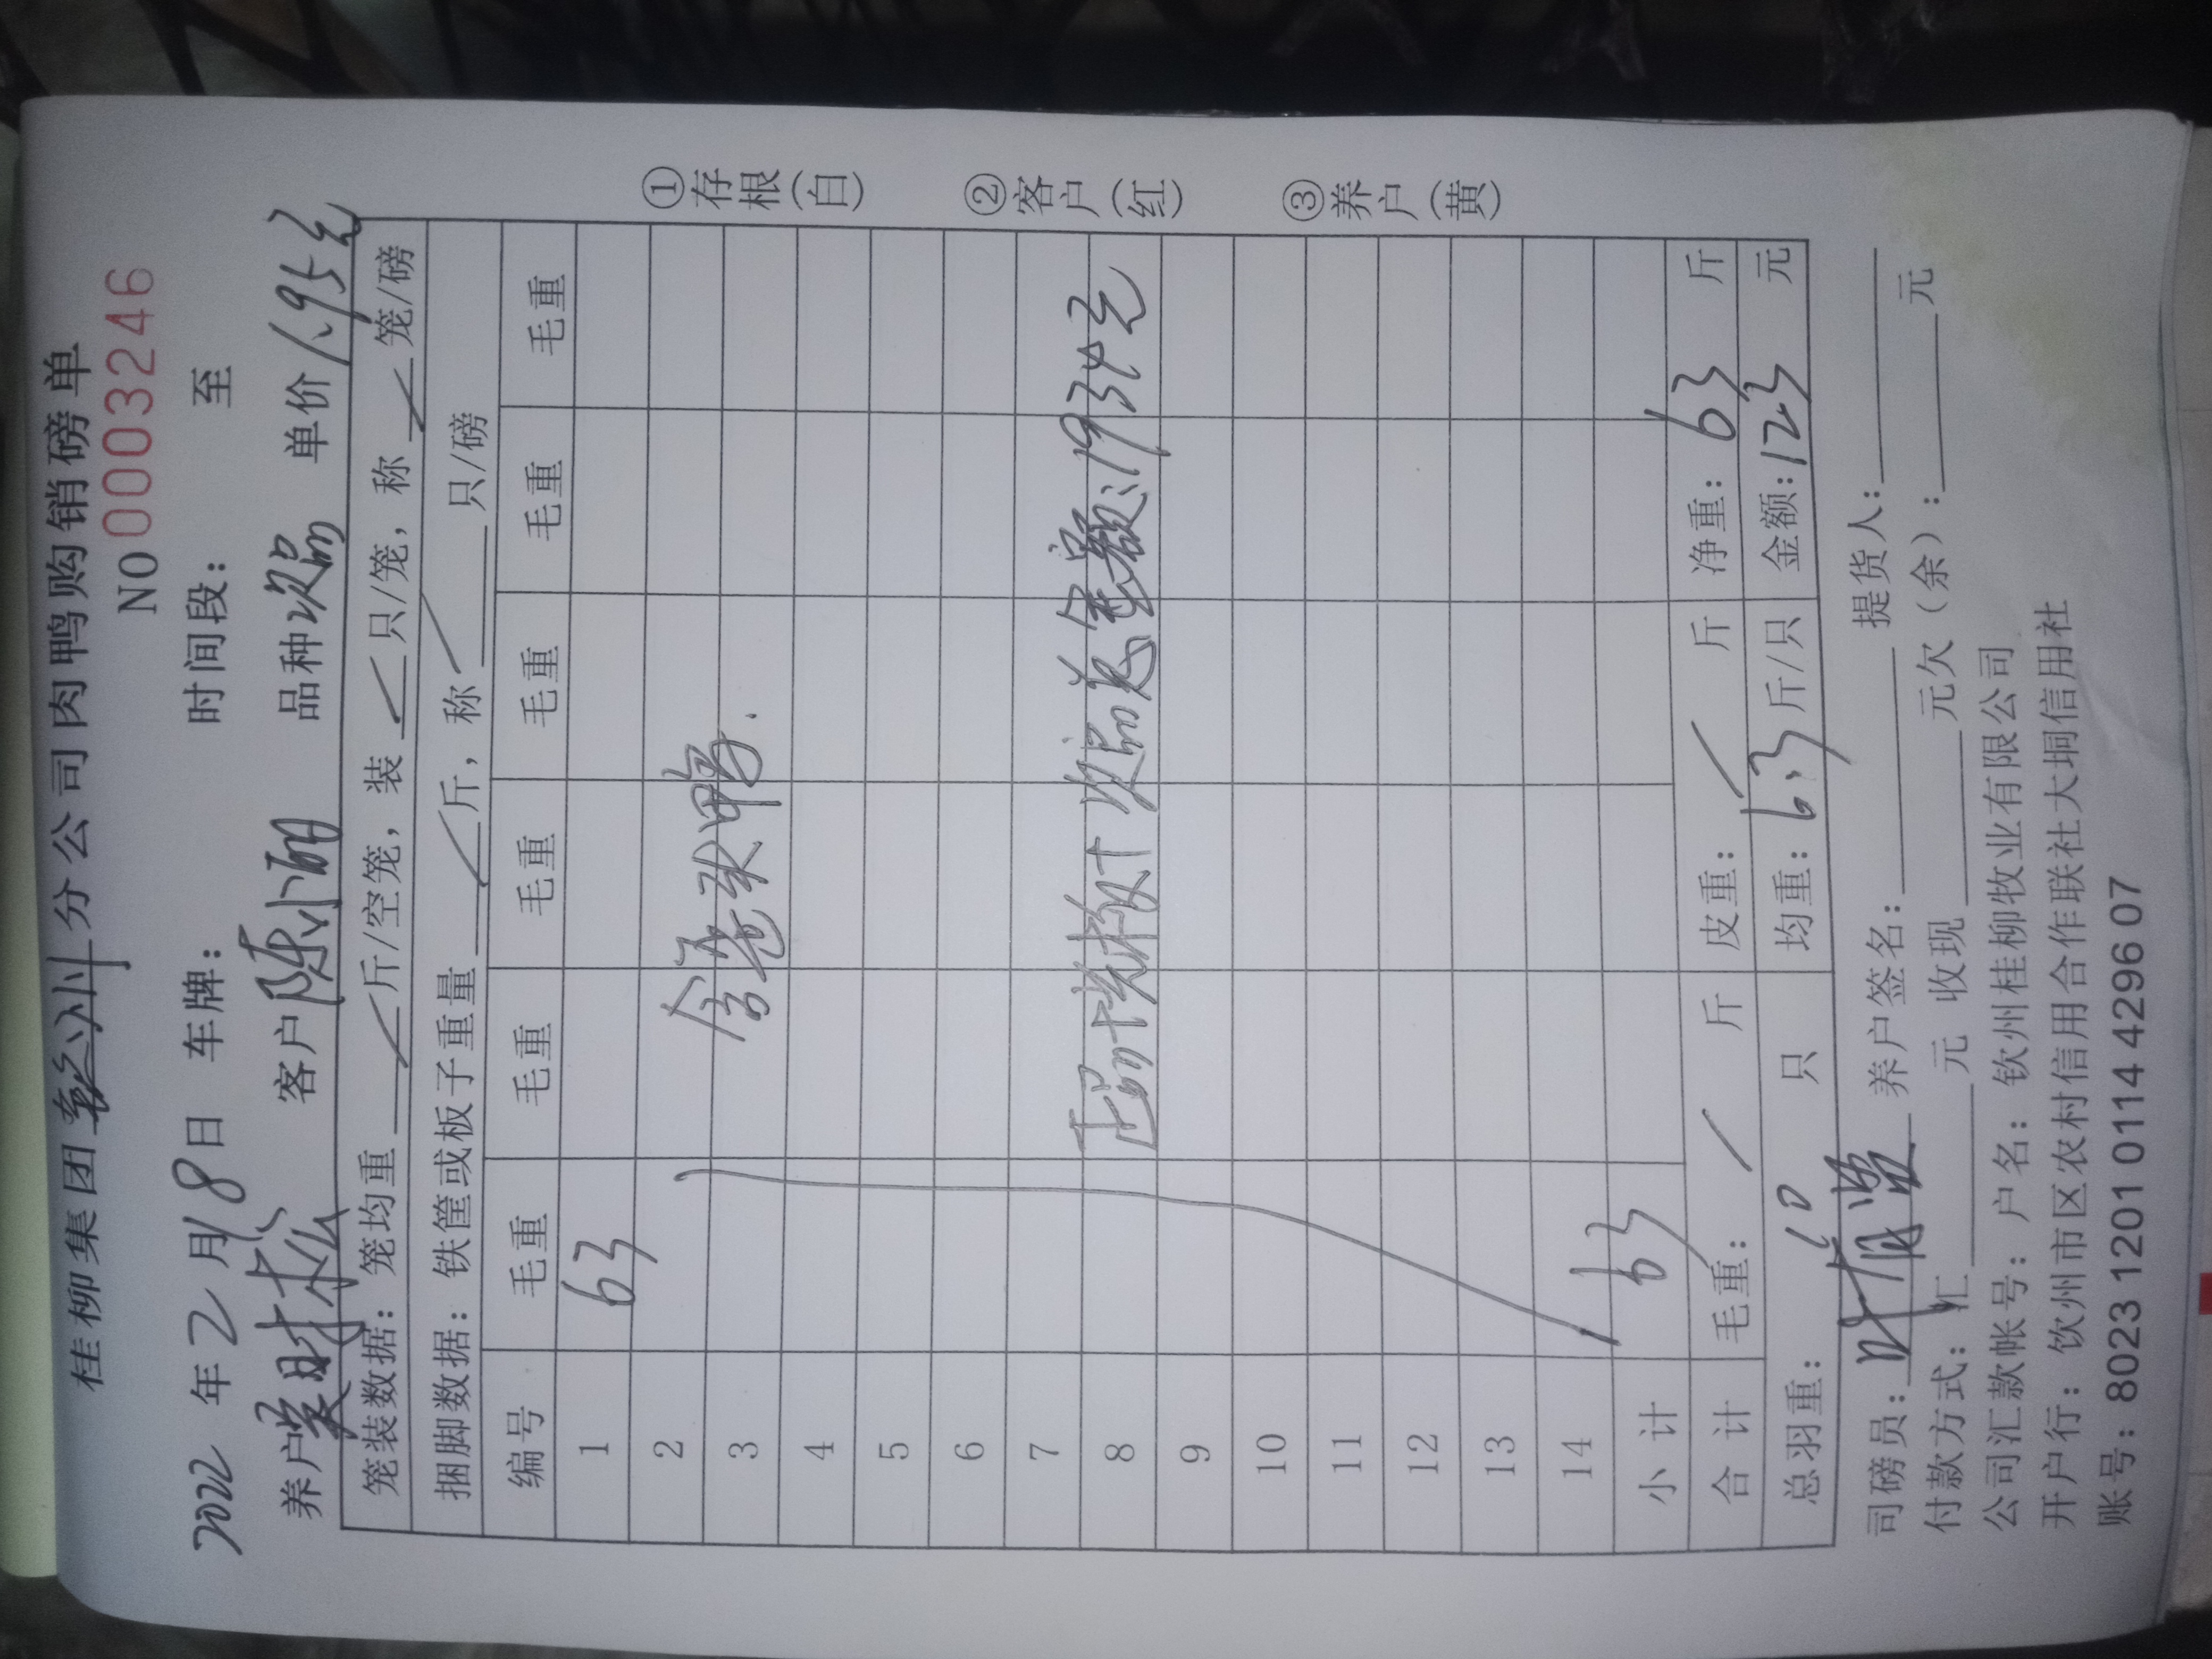 桂柳集团钦州分公司肉鸭购销磅单
NO 0003246
2022 年 2 月 18 日 车牌： 时间段： 至
养户 客户 陈 品种 次品 单价 1.95元
笼装数据：笼均重 斤/空笼，装 只/笼，称 笼/磅
捆脚数据：铁筐或板子重量 斤，称 只/磅
编号 毛重 毛重 毛重 毛重 毛重 毛重
1 63
2
3 鸭.
4
5
6
7
8 正品 次品总金额：1934元
9
10
11
12
13
14
小计 63
合计 毛重： / 斤 皮重： / 斤 净重：63 斤
总羽重： 10 只 均重：6.3 斤/只 金额：123 元
①存根(白)
②客户(红)
③养户(黄)
司磅员：叶 养户签名： 提货人：
付款方式：汇 元 收现 元欠（余）： 元
公司汇款帐号：户名：钦州桂柳牧业有限公司
开户行：钦州市区农村信用合作联社大垌信用社
账号：8023 1201 0114 4296 07